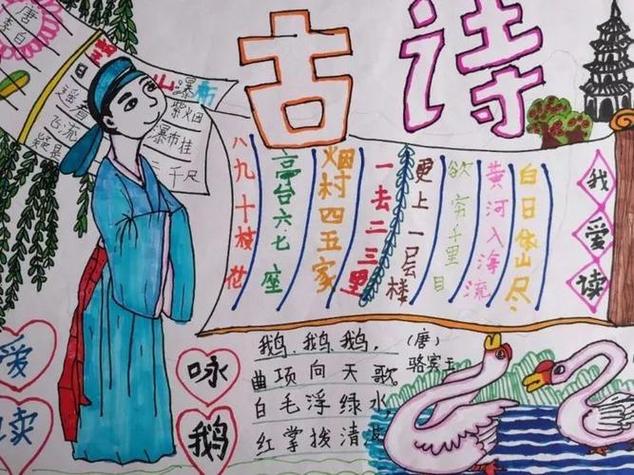 古诗
唐
李白
瀑布
日
紫烟
遥看
瀑布挂
飞流
千尺
疑是
我爱读
白日依山尽
黄河入海流
欲穷千里目
更上一层楼
一去二三里
烟村四五家
亭台六七座
八九十枝花
爱
读
咏
鹅
鹅、鹅、鹅,
(唐)
骆宾王
曲项向天歌。
白毛浮绿水,
红掌拨清波